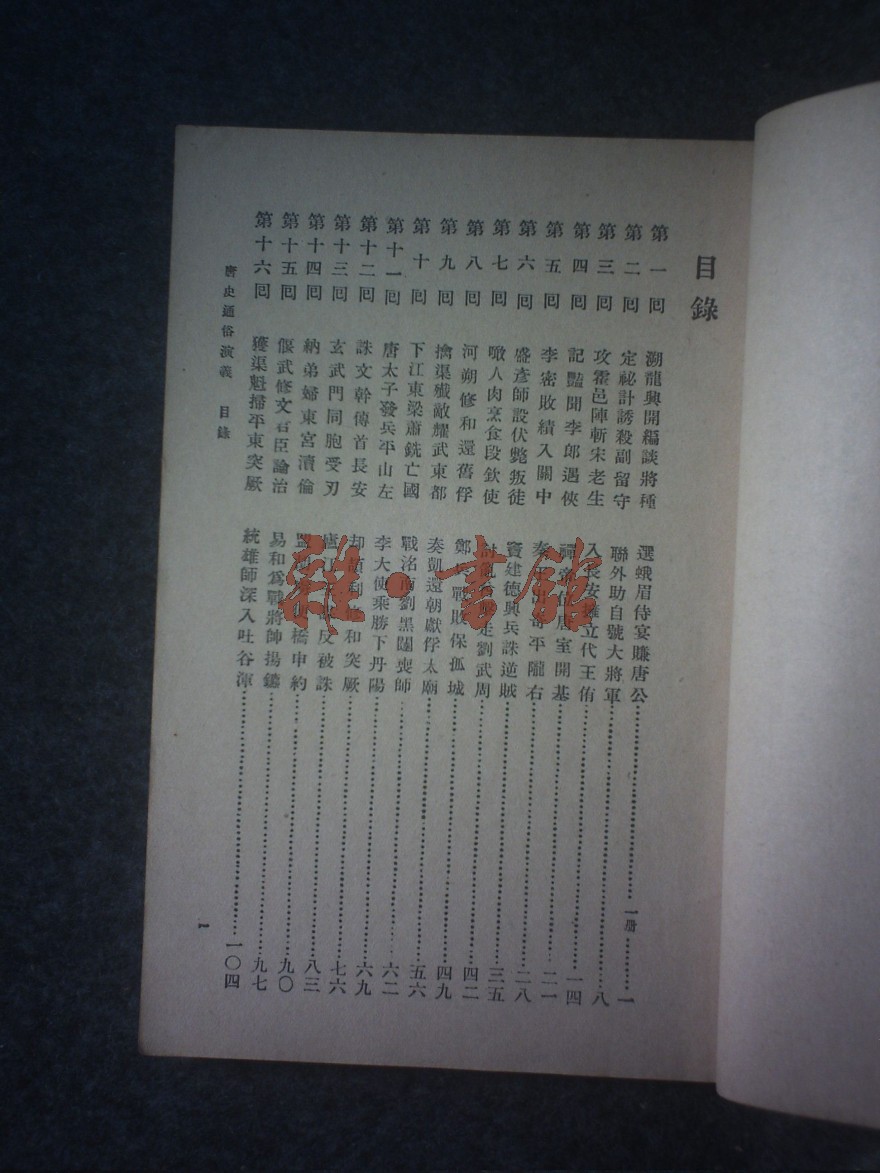 目錄
第一回 溯龍興開編談將種 選蛾眉侍宴賺唐公 一册 一
第二回 定祕計誘殺副留守 聯外助自號大將軍 八
第三回 攻霍邑陣斬宋老生 入長安擁立代王侑 一四
第四回 記豔聞李郎遇俠 禪帝位唐室開基 二一
第五回 李密敗績入關中 秦王出奇平隴右 二八
第六回 盛彥師設伏斃叛徒 竇建德興兵誅逆賊 三五
第七回 噉人肉烹食段欽使 討亂走劉武周 四二
第八回 河朔修和還舊俘 鄭戰敗保孤城 四九
第九回 擒渠殲敵耀武東都 奏凱還朝獻俘太廟 五六
第十回 下江東梁蕭銑亡國 戰洺南劉黑闥喪師 六二
第十一回 唐太子發兵平山左 李大使乘勝下丹陽 六九
第十二回 誅文幹傳首長安 却頡利和突厥 七六
第十三回 玄武門同胞受刃 廬江反被誅 八三
第十四回 納弟婦東宮瀆倫 盟橋申約 九〇
第十五回 偃武修文君臣論治 易和爲戰將帥揚鑣 九七
第十六回 獲渠魁掃平東突厥 統雄師深入吐谷渾 一〇四
唐史通俗演義 目錄 1
雜·書館